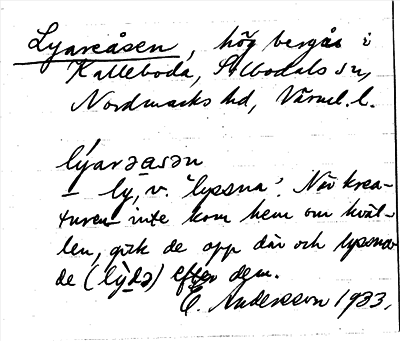 Lyareåsen, hög bergås i
Kalleboda, Silbodals sn,
Nordmarks hd, Värml. l.
lýarəasən
– ly, v. 'lyssna'. När krea-
turen inte kom hem om kväl-
len, gick de opp där och lyssna-
de (lỳdə) efter dem.
E. Andersson 1933.